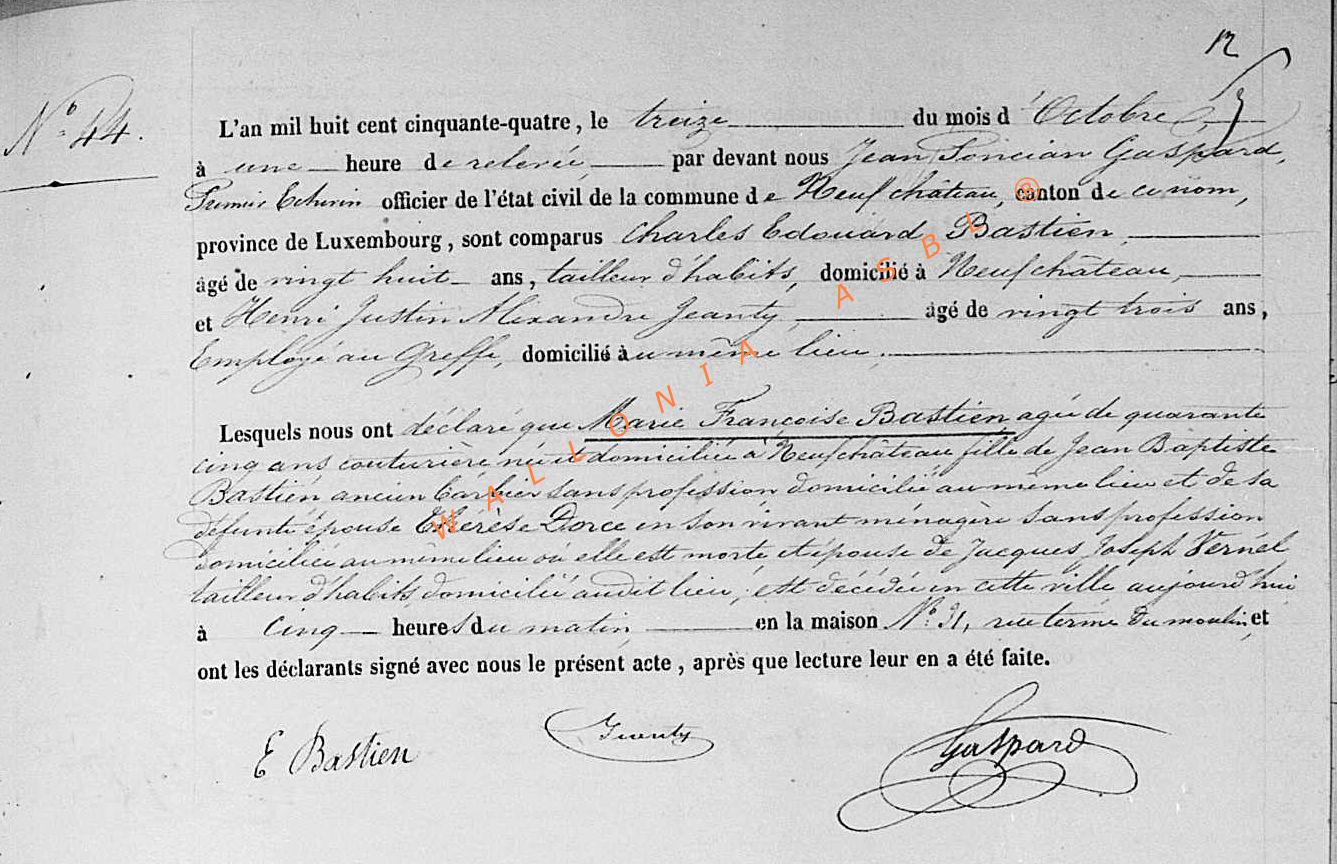 12
N° 44.
L'an mil huit cent cinquante-quatre, le treize du mois d'Octobre
à une heure de relevée, par devant nous Jean Poncian Gaspard,
Premier Echevin officier de l'état civil de la commune de Neufchâteau, canton de ce nom,
province de Luxembourg, sont comparus Charles Edouard Bastien,
âgé de vingt huit ans, tailleur d'habits, domicilié à Neufchâteau,
et Henri Justin Alexandre Jeanty, âgé de vingt trois ans,
Employé au Greffe, domicilié au même lieu.
Lesquels nous ont déclaré que Marie Françoise Bastien, agée de quarante
cinq ans couturière née et domiciliée à Neufchâteau fille de Jean Baptiste
Bastien ancien sans profession domicilié au même lieu et de sa
défunte épouse Thérèse Dorce en son vivant ménagère sans profession
domiciliée au même lieu où elle est morte et épouse de Jacques Joseph Vernel
tailleur d'habits domicilié audit lieu, est décédée en cette ville aujourd'hui
à cinq heures du matin en la maison N° 31, rue terme du moulin et
ont les déclarants signé avec nous le présent acte, après que lecture leur en a été faite.
E Bastien Jeanty Gaspard
WALLONIA ASBL ®